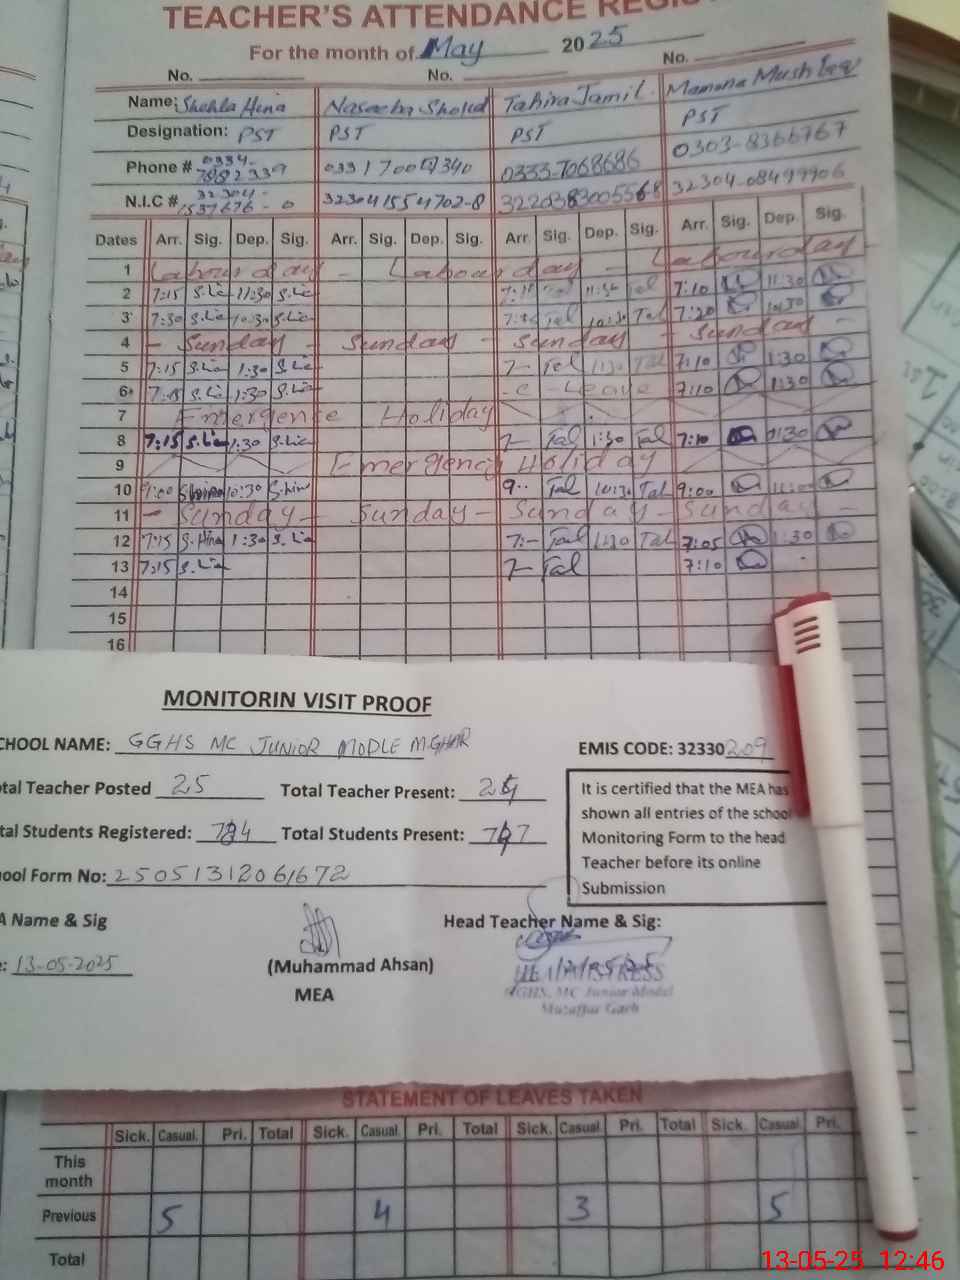 TEACHER'S ATTENDANCE REGIS
For the month of May 2025
No. No. No.
Name: Shehla Hina Naseeba Shahid Tahira Jamil Mamona Mushtaq
Designation: PST PST PST PST
Phone # 0334- 7882339 0331 7007340 0333-7068686 0303-8366767
N.I.C # 32304- 1537676-0 32304 1554702-8 3220383005568 32304-08499906
Dates Arr. Sig. Dep. Sig. Arr. Sig. Dep. Sig. Arr. Sig. Dep. Sig. Arr. Sig. Dep. Sig.
1 Labour day - Labour day - Labour day
2 7:15 11:30 7:10 11:30
3 7:30 10:30 10:30 Tal 7:20 10:30
4 - Sunday - Sunday - Sunday - Sunday -
5 7:15 1:30 7- Tal Tal 7:10 1:30
6 7:15 1:30 C-Leave 7:10 1:30
7 Emergence Holiday
8 7:15 1:30 7- Tal 1:30 Tal 7:10 1:30
9 Emergency Holiday
10 9:00 10:30 9-- Tal 10:30 Tal 9:00 11:00
11 - Sunday - Sunday - Sunday - Sunday -
12 7:15 S.Hina 1:30 7:- Tal Tal 7:05 1:30
13 7:15 7- Tal 7:10
14
15
16
MONITORIN VISIT PROOF
CHOOL NAME: GGHS MC JUNIOR MODLE M.GHAR EMIS CODE: 32330209
otal Teacher Posted 25 Total Teacher Present: 24
tal Students Registered: 784 Total Students Present: 747
ool Form No: 25051312061672
It is certified that the MEA has
shown all entries of the school
Monitoring Form to the head
Teacher before its online
Submission
A Name & Sig Head Teacher Name & Sig:
e: 13-05-2025 (Muhammad Ahsan)
MEA
GHS, MC Junior Model
Muzaffar Garh
STATEMENT OF LEAVES TAKEN
Sick. Casual. Pri. Total Sick. Casual. Pri. Total Sick. Casual. Pri. Total Sick. Casual. Pri.
This month
Previous 5 4 3 5
Total
13-05-25 12:46